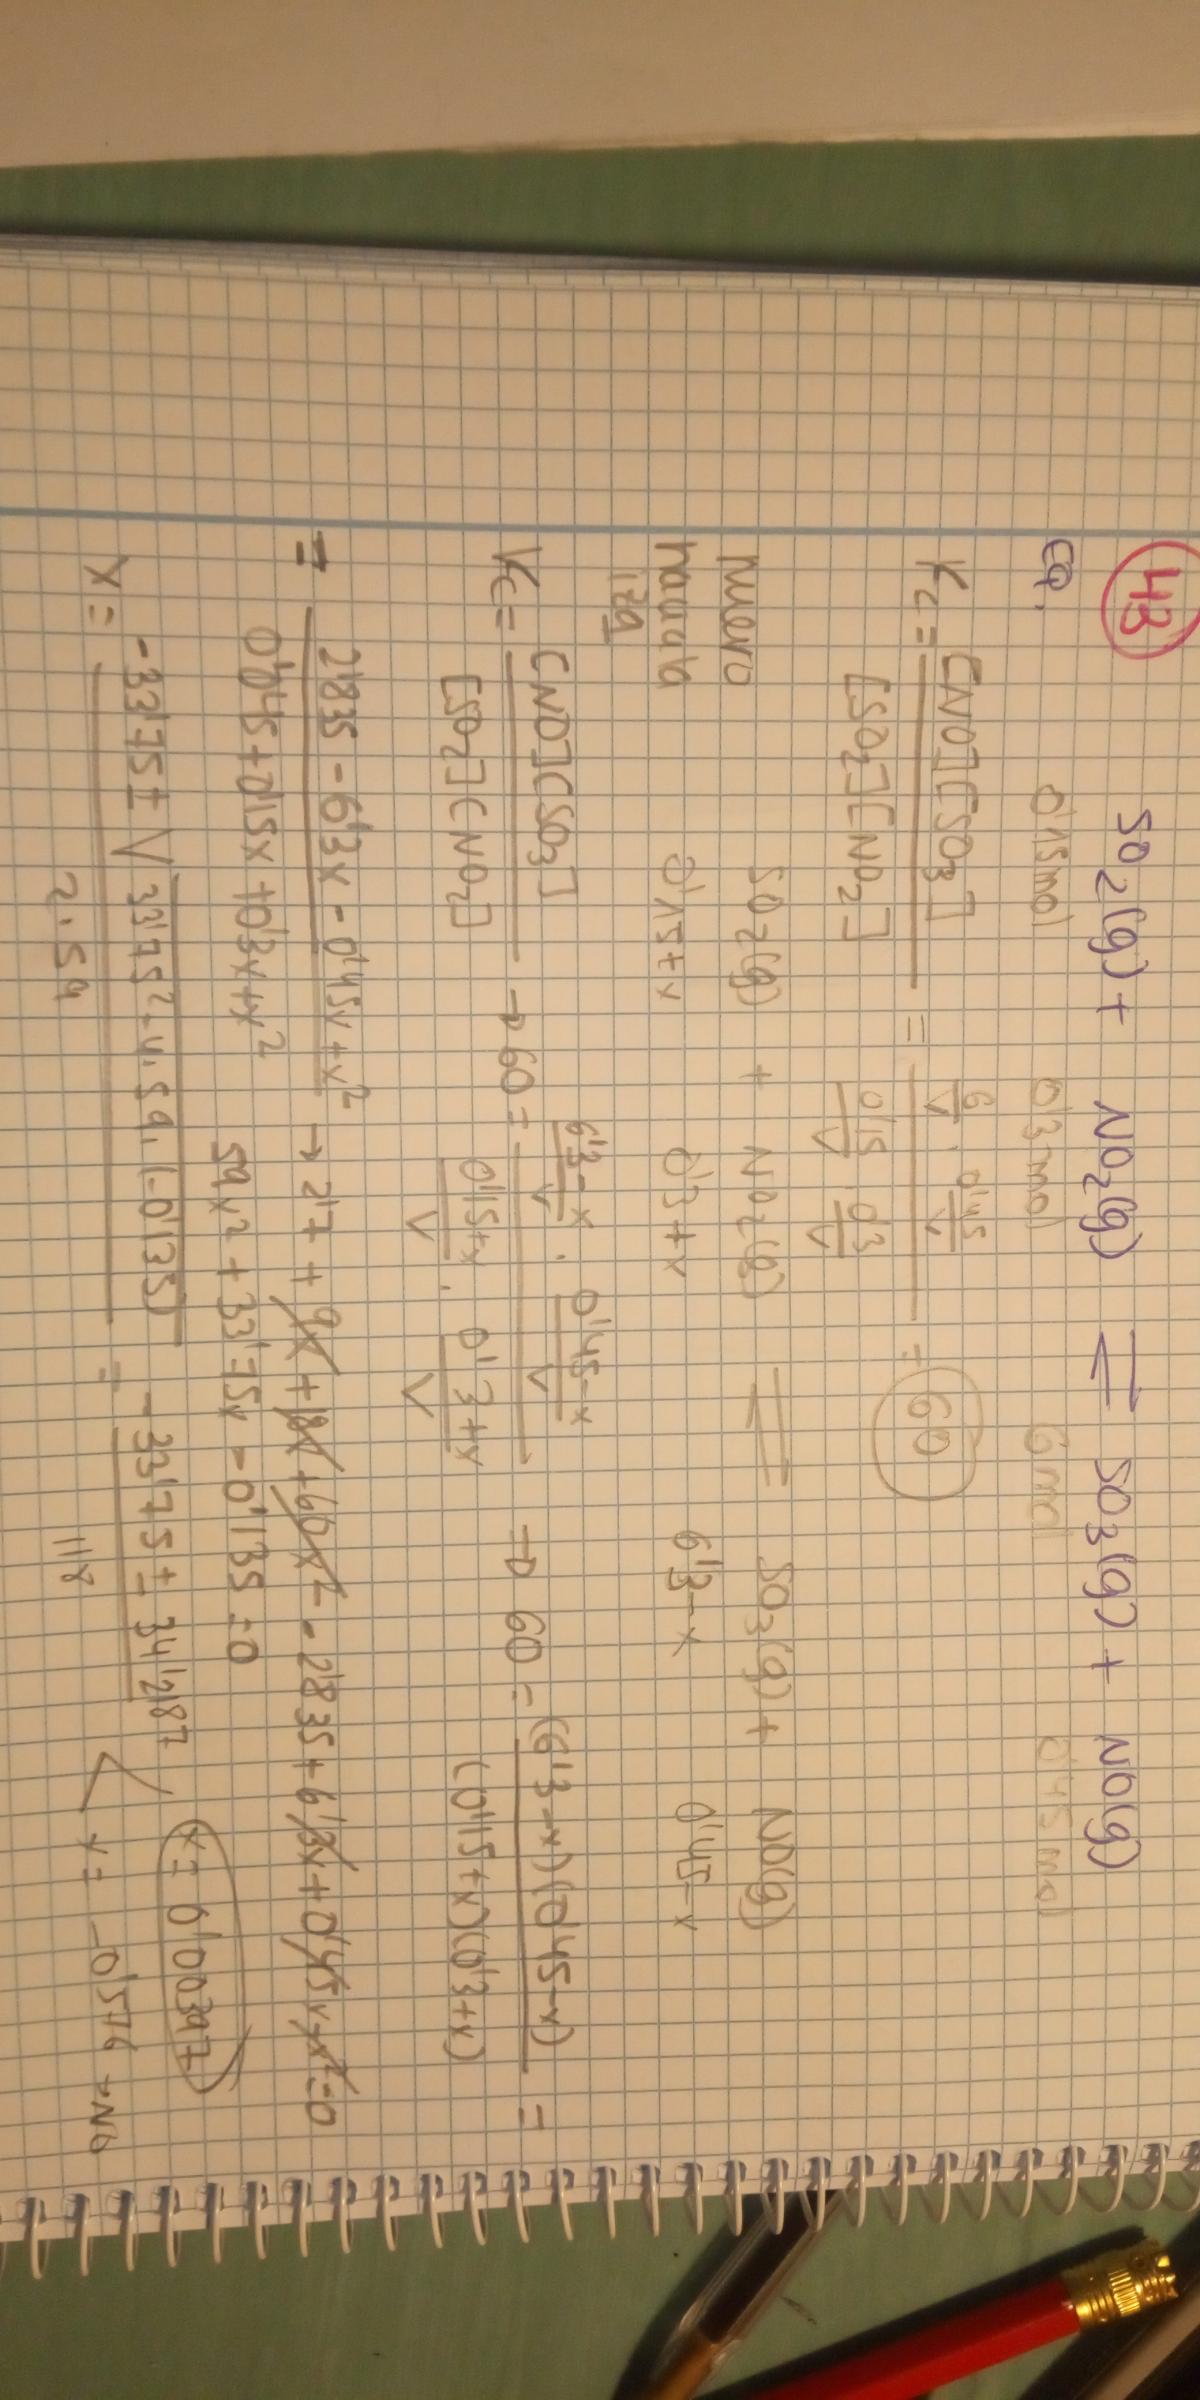 43 SO2(g) + NO2(g) ⇌ SO3(g) + NO(g)
eq. 0'15mol 0'3mol 6mol 0'45mol
Kc = [NO][SO3] / [SO2][NO2] = (6/V · 0'45/V) / (0'15/V · 0'3/V) = 60
nuevo SO2(g) + NO2(g) ⇌ SO3(g) + NO(g)
hacia la 0'15+x 0'3+x 6'3-x 0'45-x
izq
Kc = [NO][SO3] / [SO2][NO2] → 60 = (6'3-x/V · 0'45-x/V) / (0'15+x/V · 0'3+x/V) → 60 = (6'3-x)(0'45-x) / (0'15+x)(0'3+x) =
= 2'835 - 6'3x - 0'45x + x² / 0'045 + 0'15x + 0'3x + x² → 2'7 + 9x + 18x + 60x² - 2'835 + 6'3x + 0'45x - x² = 0
59x² + 33'75x - 0'135 = 0
x = -33'75 ± √33'75² - 4·59·(-0'135) / 2·59 = -33'75 ± 34'2187 / 118 < x = 0'00397
x = -0'576 → No